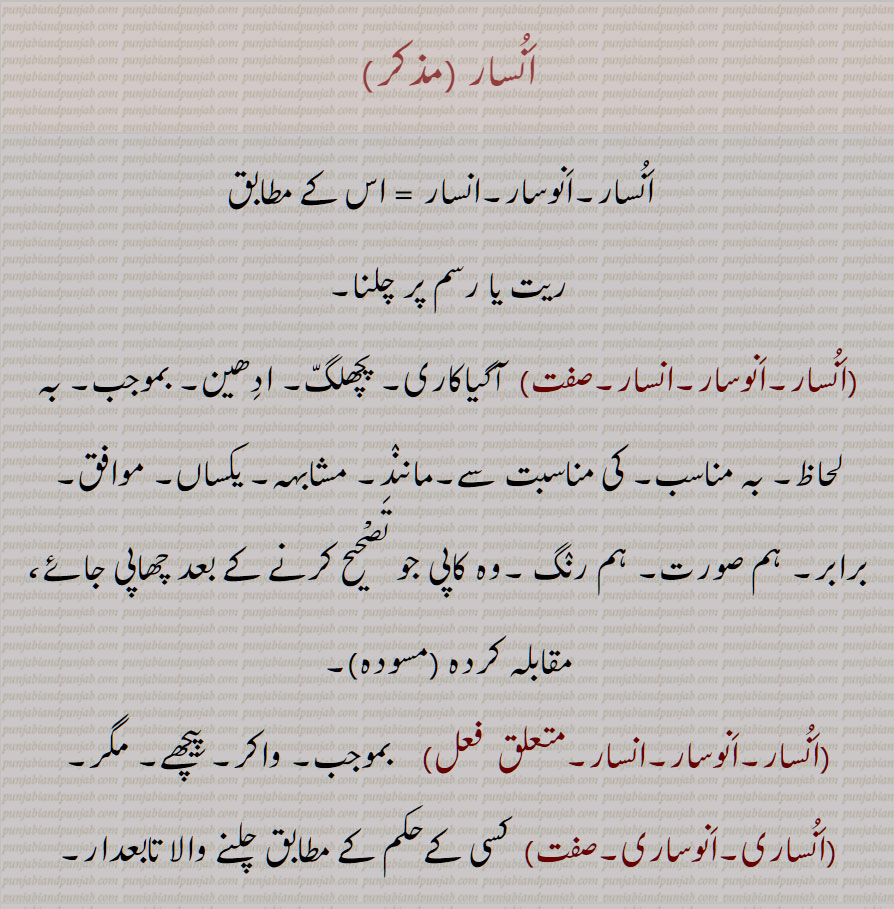 اَنُسار (مذکر)
اَنُسار۔اَنوسار۔انسار = اس کے مطابق
ریت یا رسم پر چلنا۔
(اَنُسار۔اَنوسار۔انسار۔صفت) آگیاکاری۔ پچھلگّ۔ ادِھین۔ بموجب۔ بہ
لحاظ۔ بہ مناسب۔ کی مناسبت سے۔مانند۔ مشابہہ۔یکساں۔ موافق۔
برابر۔ ہم صورت۔ ہم رنگ ۔وہ کاپی جو تَصْحِیح کرنے کے بعد چھاپی جائے،
مقابلہ کردہ (مسودہ)۔
(اَنُسار۔اَنوسار۔انسار۔متعلق فعل) بموجب۔ واکر۔ پیچھے۔ مگر۔
(اَنُساری۔اَنوساری۔صفت) کسی کے حکم کے مطابق چلنے والا تابعدار۔